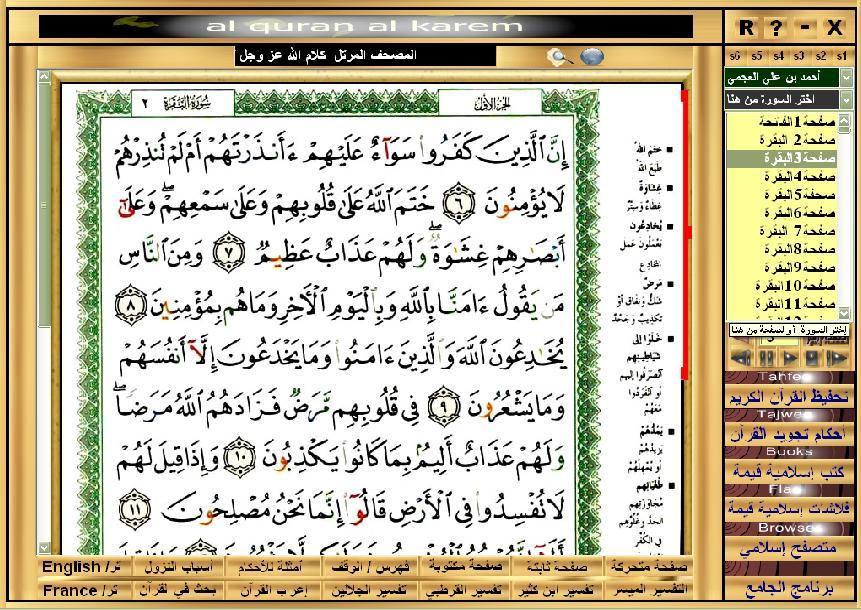 al quran al karem
R ? - X
المصحف المرتل كلام الله عز وجل
s6 s5 s4 s3 s2 s1
أحمد بن علي العجمي
اختر السورة من هنا
صفحة 1 الفاتحة
صفحة 2 البقرة
صفحة 3 البقرة
صفحة 4 البقرة
صحفة 5 البقرة
صفحة 6 البقرة
صفحة 7 البقرة
صفحة 8 البقرة
صفحة 9 البقرة
صفحة 10 البقرة
صفحة 11 البقرة
إختر السورة أو لصفحة من هنا
الجزء الأول
سورة البقرة ٢
إِنَّ الَّذِينَ كَفَرُوا سَوَاءٌ عَلَيْهِمْ ءَأَنذَرْتَهُمْ أَمْ لَمْ تُنذِرْهُمْ
لَا يُؤْمِنُونَ ٦ خَتَمَ اللَّهُ عَلَىٰ قُلُوبِهِمْ وَعَلَىٰ سَمْعِهِمْ ۖ وَعَلَىٰ
أَبْصَـٰرِهِمْ غِشَـٰوَةٌ ۖ وَلَهُمْ عَذَابٌ عَظِيمٌ ٧ وَمِنَ النَّاسِ
مَن يَقُولُ ءَامَنَّا بِاللَّهِ وَبِالْيَوْمِ الْأَخِرِ وَمَا هُم بِمُؤْمِنِينَ ٨
يُخَـٰدِعُونَ اللَّهَ وَالَّذِينَ ءَامَنُوا وَمَا يَخْدَعُونَ إِلَّا أَنفُسَهُمْ
وَمَا يَشْعُرُونَ ٩ فِي قُلُوبِهِم مَّرَضٌ فَزَادَهُمُ اللَّهُ مَرَضًا ۖ
وَلَهُمْ عَذَابٌ أَلِيمٌ بِمَا كَانُوا يَكْذِبُونَ ١٠ وَإِذَا قِيلَ لَهُمْ
لَا تُفْسِدُوا فِي الْأَرْضِ قَالُوا إِنَّمَا نَحْنُ مُصْلِحُونَ ١١
ختم الله
طبع الله
غشاوة
غطاء وستر
يخادعون
يعملون عمل
المخادع
مرض
شك ونفاق أو
تكذيب وجحد
خلوا إلى
شياطينهم
انصرفوا إليهم
أو انفردوا
معهم
يمدهم
يزيدهم
أو يمهلهم
طغيانهم
مجاوزتهم
الحد وغلوهم
في الكفر
تحفيظ القرآن الكريم
Tajwee
أحكام تجويد القرآن
Books
كتب إسلامية قيمة
فلاشات إسلامية قيمة
Browse
متصفح إسلامي
برنامج الجامع
صفحة متحركة
صفحة ثابتة
صفحة مكتوبة
فهرس / الوقف
أمثلة للأحكام
أسباب النزول
English /تر
التفسير الميسر
تفسير ابن كثير
تفسير القرطبي
تفسير الجلالين
إعرب القرآن
بحث في لقرآن
France /تر